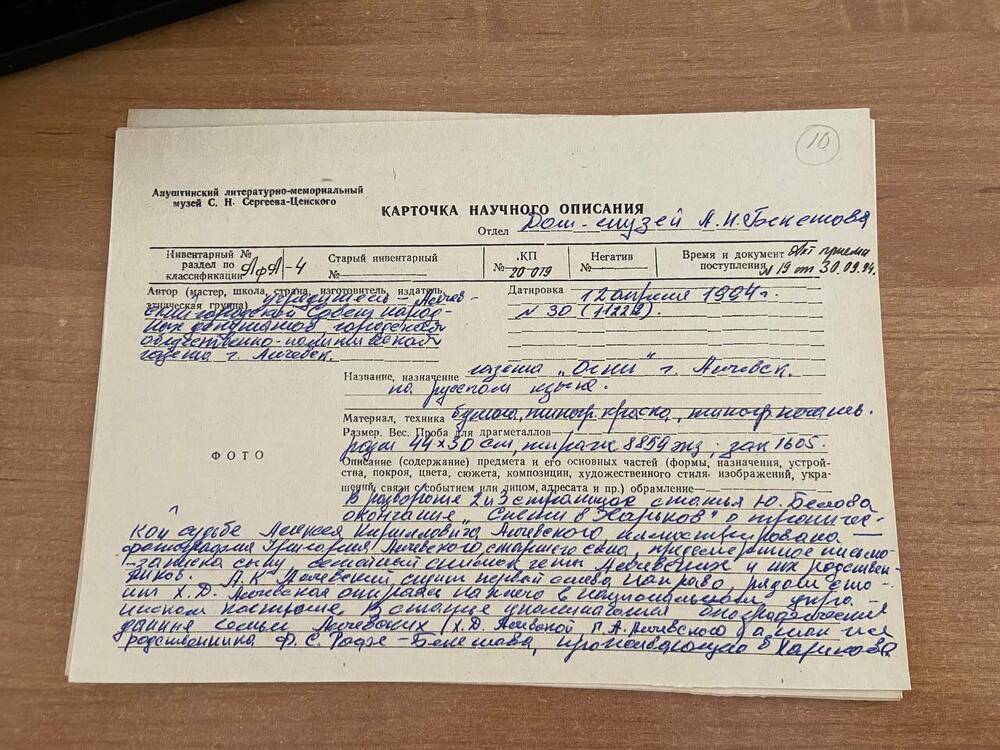 10
Алуштинский литературно-мемориальный
музей С. Н. Сергеева-Ценского
КАРТОЧКА НАУЧНОГО ОПИСАНИЯ
Отдел Дом-музей А.Н. Бекетова
Инвентарный №
раздел по
классификации АфА-4
Старый инвентарный
№
КП
№ 20 019
Негатив
№
Время и документ Акт приема
поступления № 19 от 30.09.94.
Автор (мастер, школа, страна, изготовитель, издатель,
этническая группа) учредитель - Алчев-
ский городской Совет народ-
ных депутатов, городская
общественно-политическая
газета г. Алчевск.
Датировка 12 апреля 1994 г.
№ 30 (11222).
Название, назначение газета „Огни" г. Алчевск.
на русском языке.
Материал, техника бумага, типогр. краска, типогр. печать.
Размер. Вес. Проба для драгметаллов
разм 44×30 см, тираж 8859 экз; зак 1605.
ФОТО
Описание (содержание) предмета и его основных частей (формы, назначения, устрой-
ства, покроя, цвета, сюжета, композиции, художественного стиля, изображений, укра-
шений, связи с событием или лицом, адресата и пр.) обрамление
В развороте 2 и 3 страницы статья Ю. Белова
окончание „Снега в Харьков" о трагичес-
кой судьбе Алексея Кирилловича Алчевского, иллюстрирована
фотографиями Григория Алчевского, старшего сына, предсмертное письмо-
-записка сыну, семейный снимок четы Алчевских и их родствен-
ников. А.К. Алчевский, сидит первый слева направо, рядом сто-
ит Х.Д. Алчевская в национальном укра-
инском костюме. В статье упоминаются биографические
данные семьи Алчевских (Х.Д. Алчевской, Г.А. Алчевского а
родственника Ф. С. Рофе-Бекетова, проживающего в Харькове.